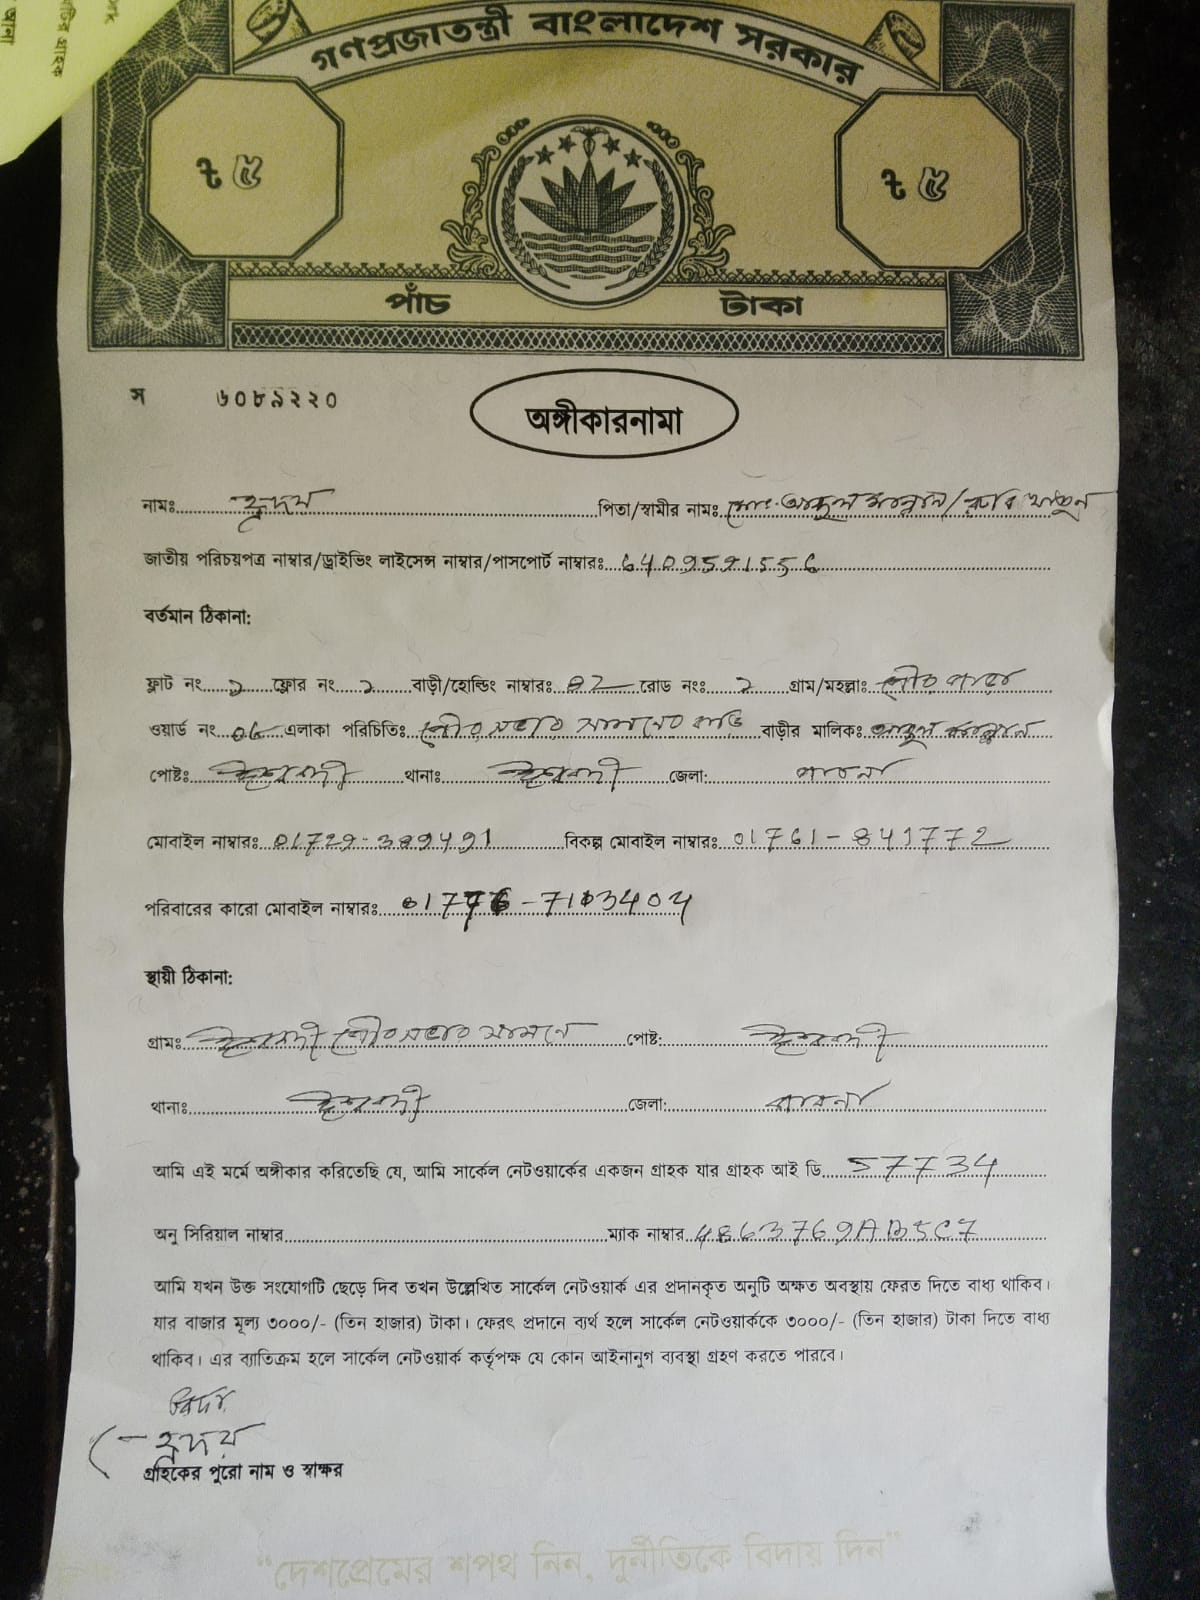 গণপ্রজাতন্ত্রী বাংলাদেশ সরকার
ট ৫ ট ৫
পাঁচ টাকা
স ৬০৮৯২২০
অঙ্গীকারনামা
নামঃ হৃদয় পিতা/স্বামীর নামঃ মোঃ আব্দুল মান্নান/রুবি খাতুন
জাতীয় পরিচয়পত্র নাম্বার/ড্রাইভিং লাইসেন্স নাম্বার/পাসপোর্ট নাম্বারঃ 6409591556
বর্তমান ঠিকানা:
ফ্লাট নং ১ ফ্লোর নং ১ বাড়ী/হোল্ডিং নাম্বারঃ 02 রোড নংঃ ১ গ্রাম/মহল্লাঃ
ওয়ার্ড নং 06 এলাকা পরিচিতিঃ পৌরসভার সামনের বাড়ি বাড়ীর মালিকঃ আব্দুল মান্নান
পোষ্টঃ ঈশ্বরদী থানাঃ ঈশ্বরদী জেলা: পাবনা
মোবাইল নাম্বারঃ বিকল্প মোবাইল নাম্বারঃ 01761-841772
পরিবারের কারো মোবাইল নাম্বারঃ
স্থায়ী ঠিকানা:
গ্রামঃ ঈশ্বরদী পৌরসভার সামনে পোষ্ট: ঈশ্বরদী
থানাঃ ঈশ্বরদী জেলা: পাবনা
আমি এই মর্মে অঙ্গীকার করিতেছি যে, আমি সার্কেল নেটওয়ার্কের একজন গ্রাহক যার গ্রাহক আই ডি 57734
অনু সিরিয়াল নাম্বার ম্যাক নাম্বার 4863769AB5C7
আমি যখন উক্ত সংযোগটি ছেড়ে দিব তখন উল্লেখিত সার্কেল নেটওয়ার্ক এর প্রদানকৃত অনুটি অক্ষত অবস্থায় ফেরত দিতে বাধ্য থাকিব।
যার বাজার মূল্য ৩০০০/- (তিন হাজার) টাকা। ফেরৎ প্রদানে ব্যর্থ হলে সার্কেল নেটওয়ার্ককে ৩০০০/- (তিন হাজার) টাকা দিতে বাধ্য
থাকিব। এর ব্যাতিক্রম হলে সার্কেল নেটওয়ার্ক কর্তৃপক্ষ যে কোন আইনানুগ ব্যবস্থা গ্রহণ করতে পারবে।
হৃদয়
গ্রহিকের পুরো নাম ও স্বাক্ষর
"দেশপ্রেমের শপথ নিন, দুর্নীতিকে বিদায় দিন"